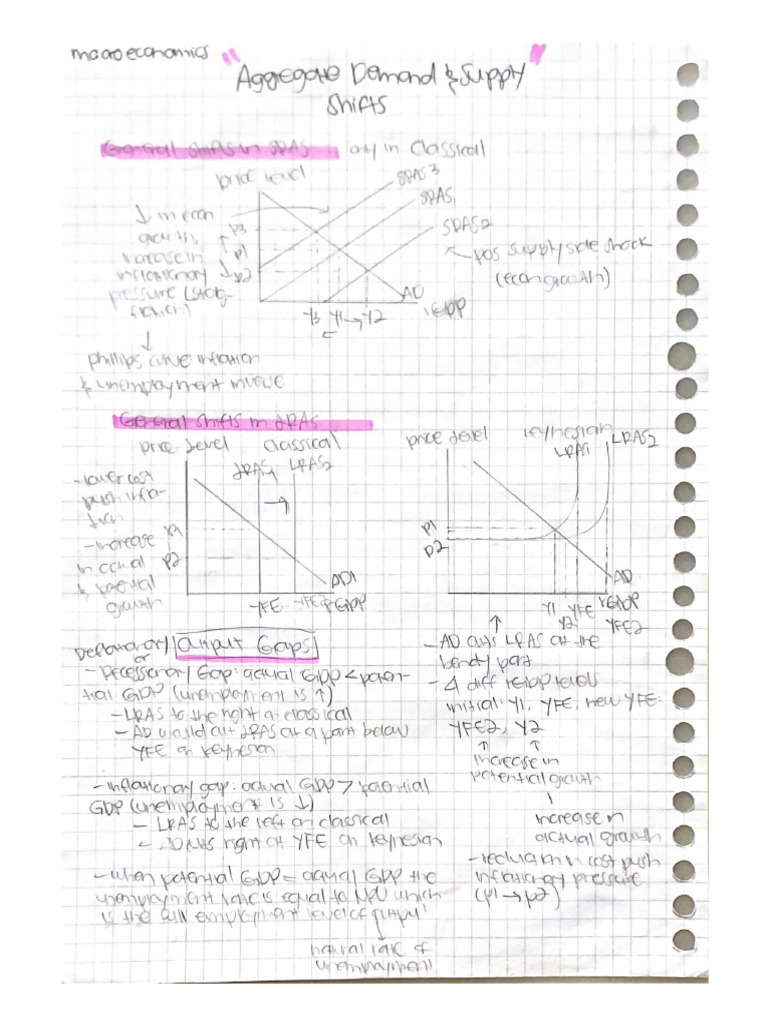 macroeconomics
"Aggregate Demand & Supply"
Shifts
General shifts in SRAS only in Classical
price level
SRAS3
SRAS1
SRAS2
↓ in econ
growth,
increase in
inflationary
pressure (stag-
flation)
P3
P1
P2
← pos supply side shock
(econ growth)
AD
Y3 Y1 → Y2
←
rGDP
↓
phillips curve: inflation
& unemployment inverse
General shifts in LRAS
price level classical
LRAS1 LRAS2
- lower cost
push infla-
tion
- increase
in actual
& potential
growth
P1
P2
AD1
YFE YFE2 rGDP
price level keynesian
LRAS1 LRAS2
P1
P2
AD
Y1 YFE rGDP
Y2 YFE2
- AD cuts LRAS at the
bendy part
- 4 diff rGDP levels
initial: Y1, YFE, new YFE:
YFE2, Y2
increase in
potential growth
increase in
actual growth
- reduction in cost push
inflationary pressure
(P1 → P2)
Deflationary/ Output Gaps
or
- Recessionary Gap: actual GDP < poten-
tial GDP (unemployment is ↑)
- LRAS to the right on classical
- AD would cut LRAS at a part below
YFE on keynesian
- inflationary gap: actual GDP > potential
GDP (unemployment is ↓)
- LRAS to the left on classical
- AD cuts right at YFE on keynesian
- when potential GDP = actual GDP the
unemployment rate is equal to NRU which
is the full employment level of output
natural rate of
unemployment